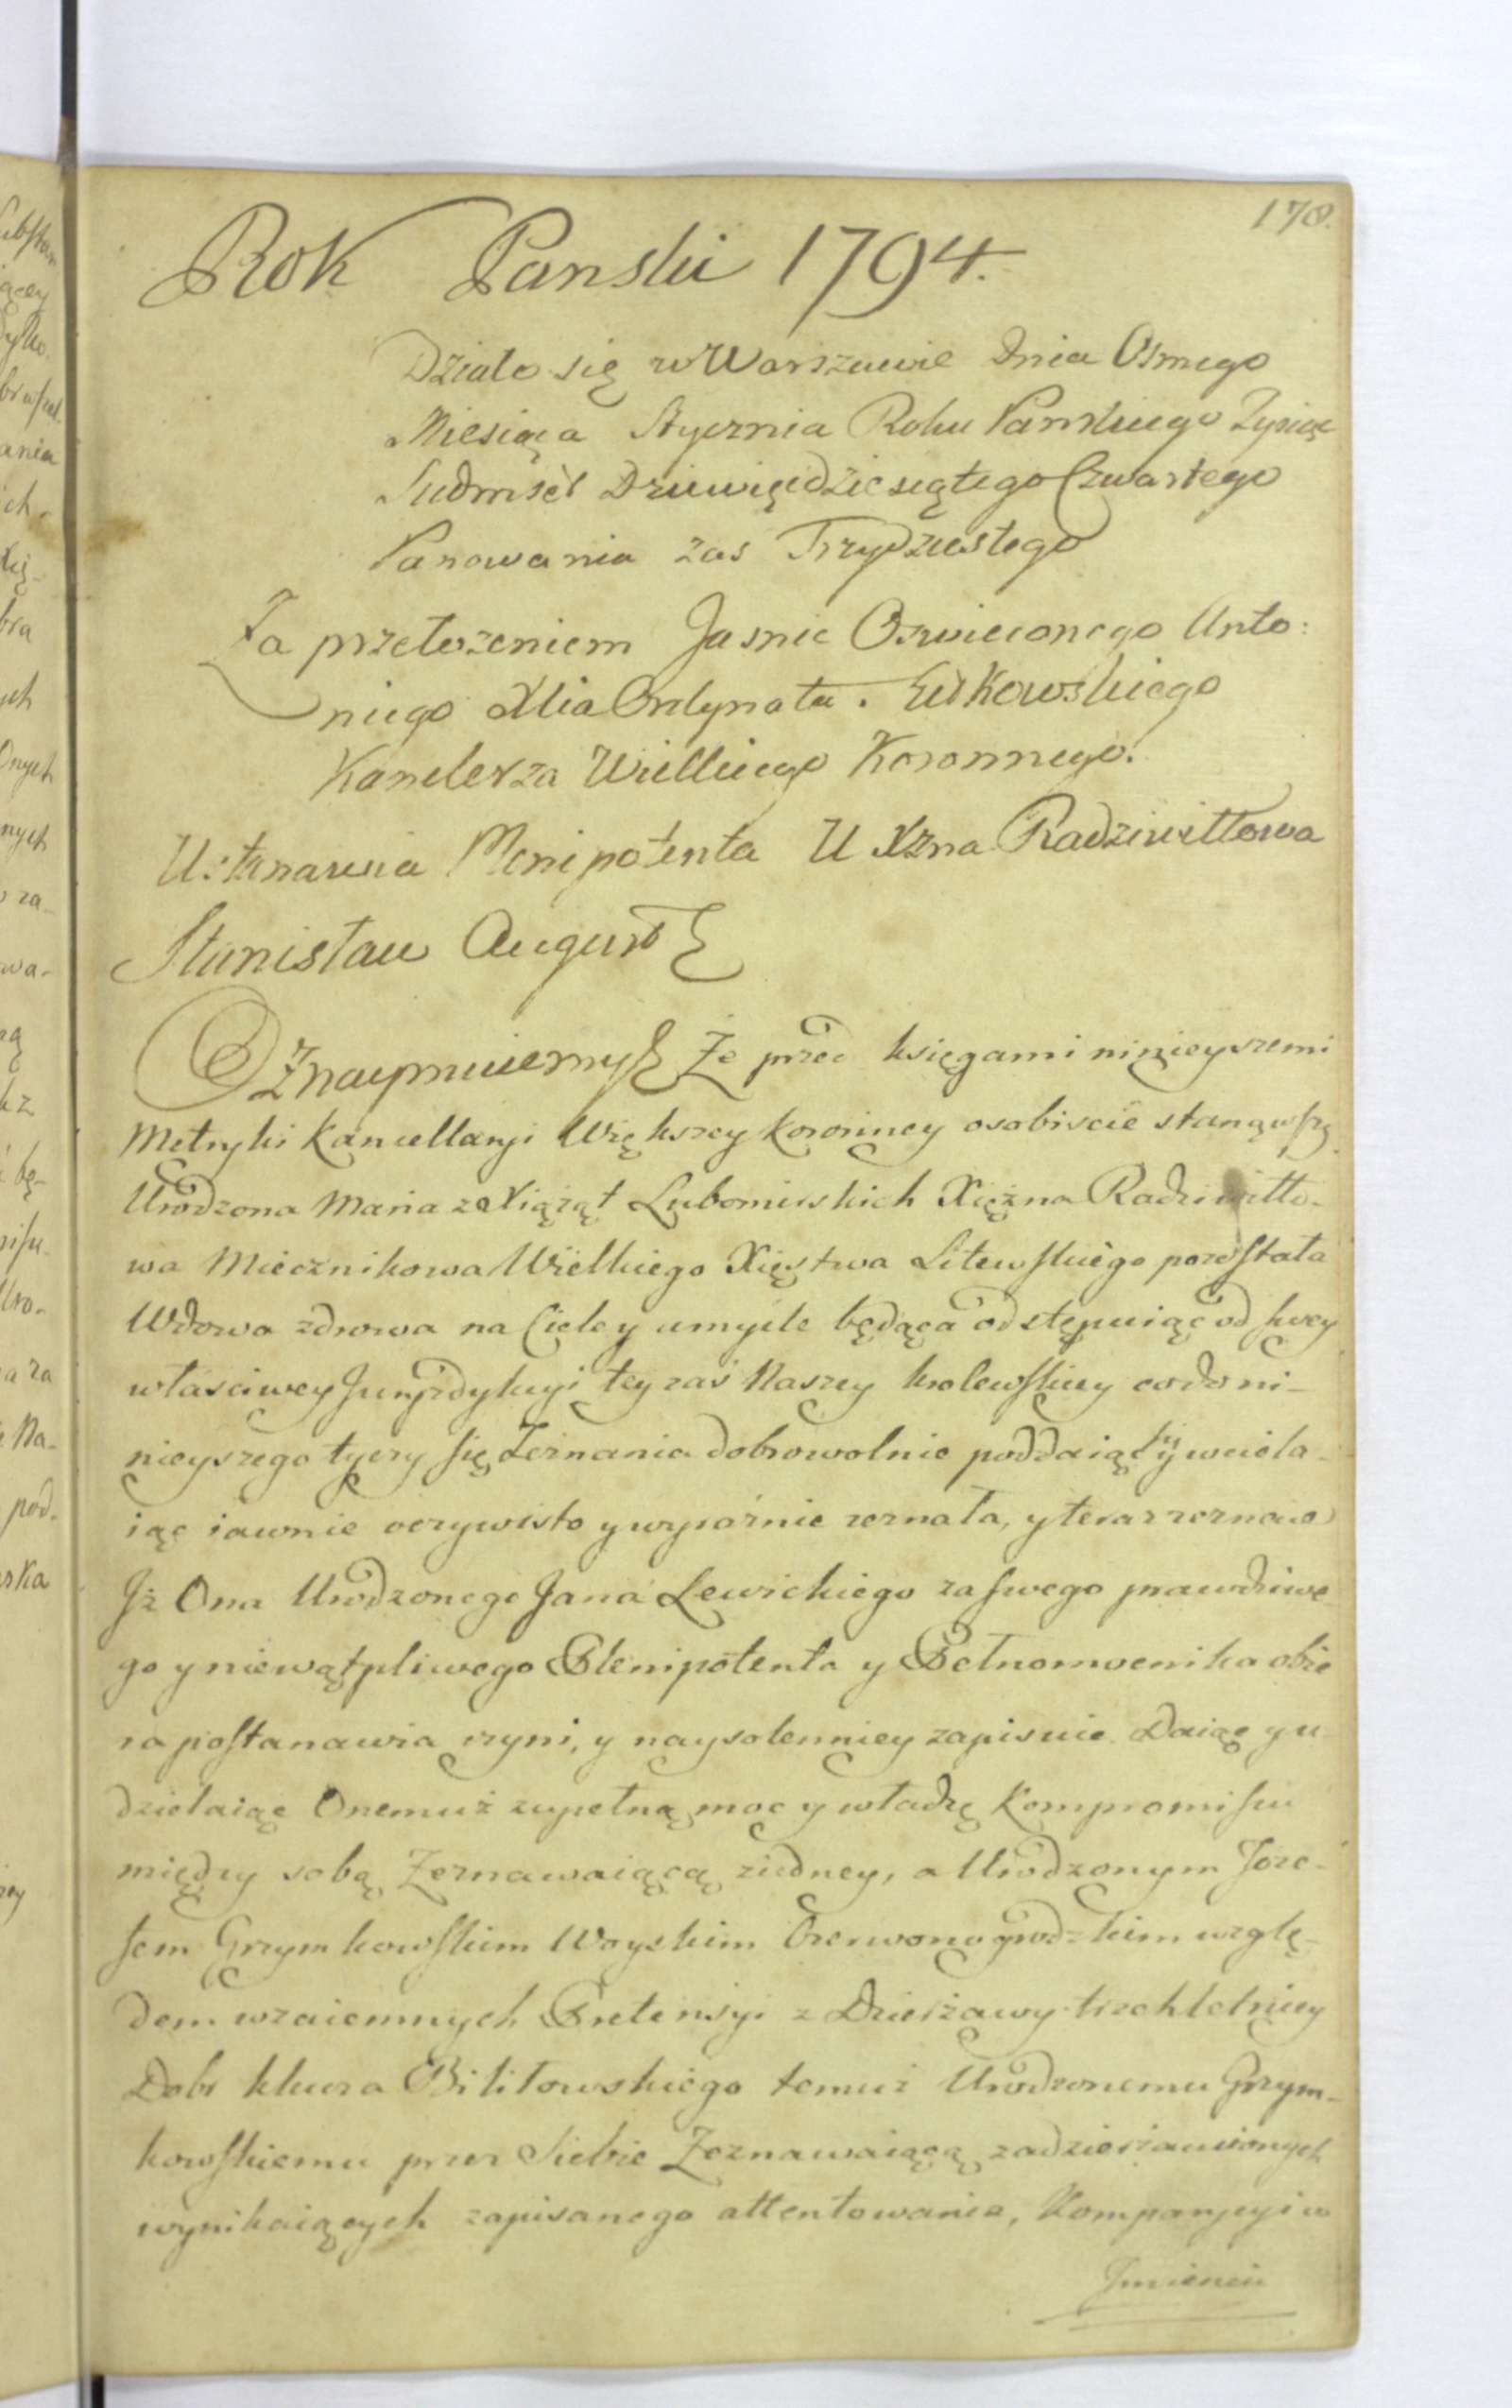 178.
Rok Panski 1794.
Działo się w Warszawie Dnia Osmego
Miesiąca Stycznia Roku Panskiego Tysiąc
Siedmset Dziewięcdziesiątego Czwartego
Panowania zas Trzydziestego
Za przełozeniem Jasnie Oswieconego Anto:
niego Xcia Ordynata. Sułkowskiego
Kanclerza Wielkiego Koronnego.
Ustanawia Plenipotenta U Xzna Radziwiłłowa
Stanisław August
Oznaymuiemy Ze przed księgami ninieyszemi
Metryki Kancellaryi Większey koronney osobiscie stanąwszy
Urodzona Maria z Xiążąt Lubomirskich Xiężna Radziwiłło-
wa Miecznikowa Wielkiego Xięstwa Litewskiego pozostała
Wdowa zdrowa na Ciele y umysle będąca odstępuiąc od swey
własciwey Juryzdykcyi tey zaś Naszey krolewskiey co do ni-
nieyszego tyczy się Zeznania dobrowolnie poddaiąc się y wciela-
iąc iawnie oczywisto y wyraźnie zeznała, y teraz zeznaie
Jż Ona Urodzonego Jana Lewickiego za swego prawdziwe
go y niewątpliwego Plenipotenta y Pełnomocnika obie
ra postanawia czyni, y naysolenniey zapisuie. Daiąc y u-
dzielaiąc Onemuż zupełną moc y władzę Kompromissu
między sobą Zeznawaiącą ziedney, a Urodzonym Joze-
fem Grzymkowskim Woyskim Czerwonogrodzkim wzglę-
dem wzaiemnych Pretensyi z Dzierżawy trzechletniey
Dobr klucza Biłiłowskiego temuż Urodzonemu Grzym-
kowskiemu przez Siebie Zeznawaiącą zadzierżawionych
wynikaiących zapisanego attentowania, Kompanycyi w
Jmieniu